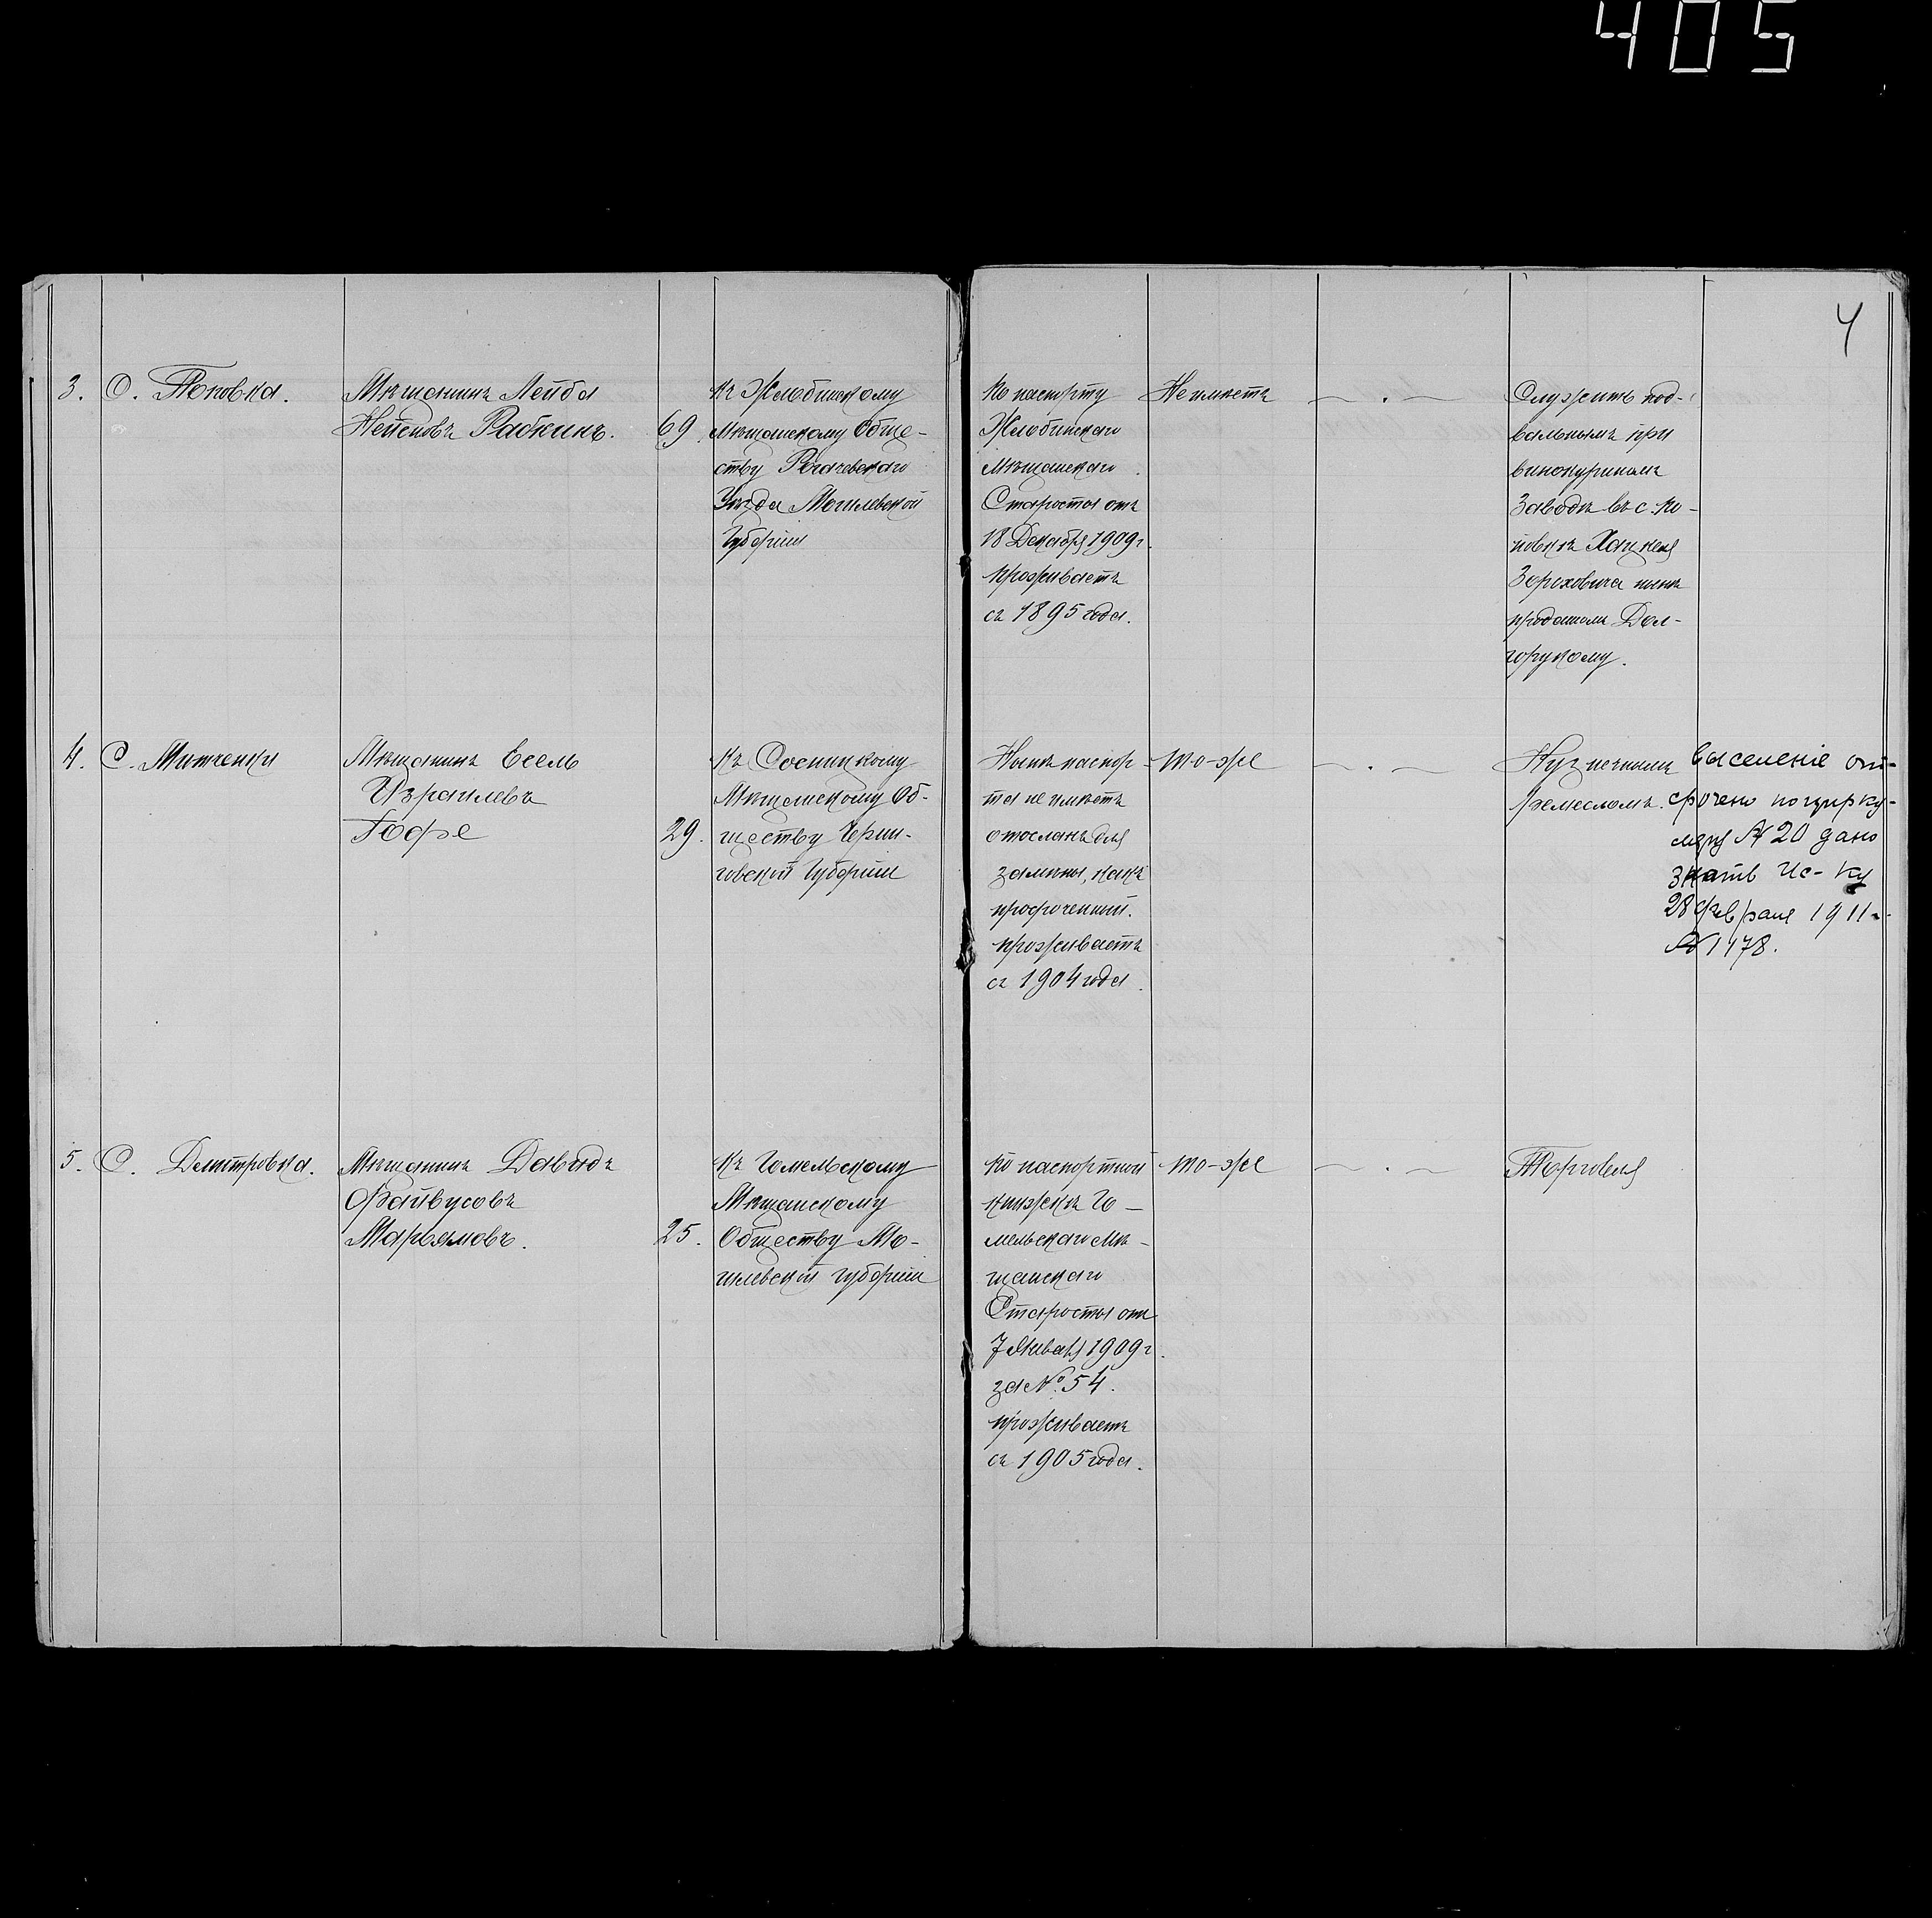 405
4
3.
С. Поповка.
Мѣщанинъ Лейба
Рабкинъ.
69
къ Жлобинскому
Мѣщанскому Обще-
ству Рогачевскаго
Уѣзда Могилевской
Губернiи
по паспорту
Жлобинскаго
мѣщанскаго
Старосты отъ
18 Декабря 1909 г.
проживаетъ
съ 1895 года.
Не имѣетъ
— . —
Служитъ под-
вальнымъ при
винокуренномъ
Заводѣ въ с. По-
повкѣ Хацкеля
Зориховича нынѣ
проданномъ Дол-
горукому.
4.
С. Митченки
Мѣщанинъ Есель
Израилевъ
Іофе
29.
къ Сосницкому
Мѣщанскому Об-
ществу Черни-
говской Губернiи
Нынѣ паспор-
та не имѣетъ
отосланъ для
замѣны, какъ
просроченный.
проживаетъ
съ 1904 года.
то-же
— . —
Кузнечнымъ
ремесломъ.
выселенiе от-
срочено по цирку-
ляру № 20 дано
знать Ис-ку
28 февраля 1911 г.
№ 1478.
5.
С. Дмитровка.
Мѣщанинъ Давидъ
Файвусовъ
Марьямовъ.
25.
къ Гомельскому
Мѣщанскому
Обществу Мо-
гилевской губернiи
по паспортной
книжкѣ Го-
мельскаго мѣ-
щанскаго
Старосты отъ
7 Января 1909 г.
за №. 54.
проживаетъ
съ 1905 года.
то-же
— . —
Торговля